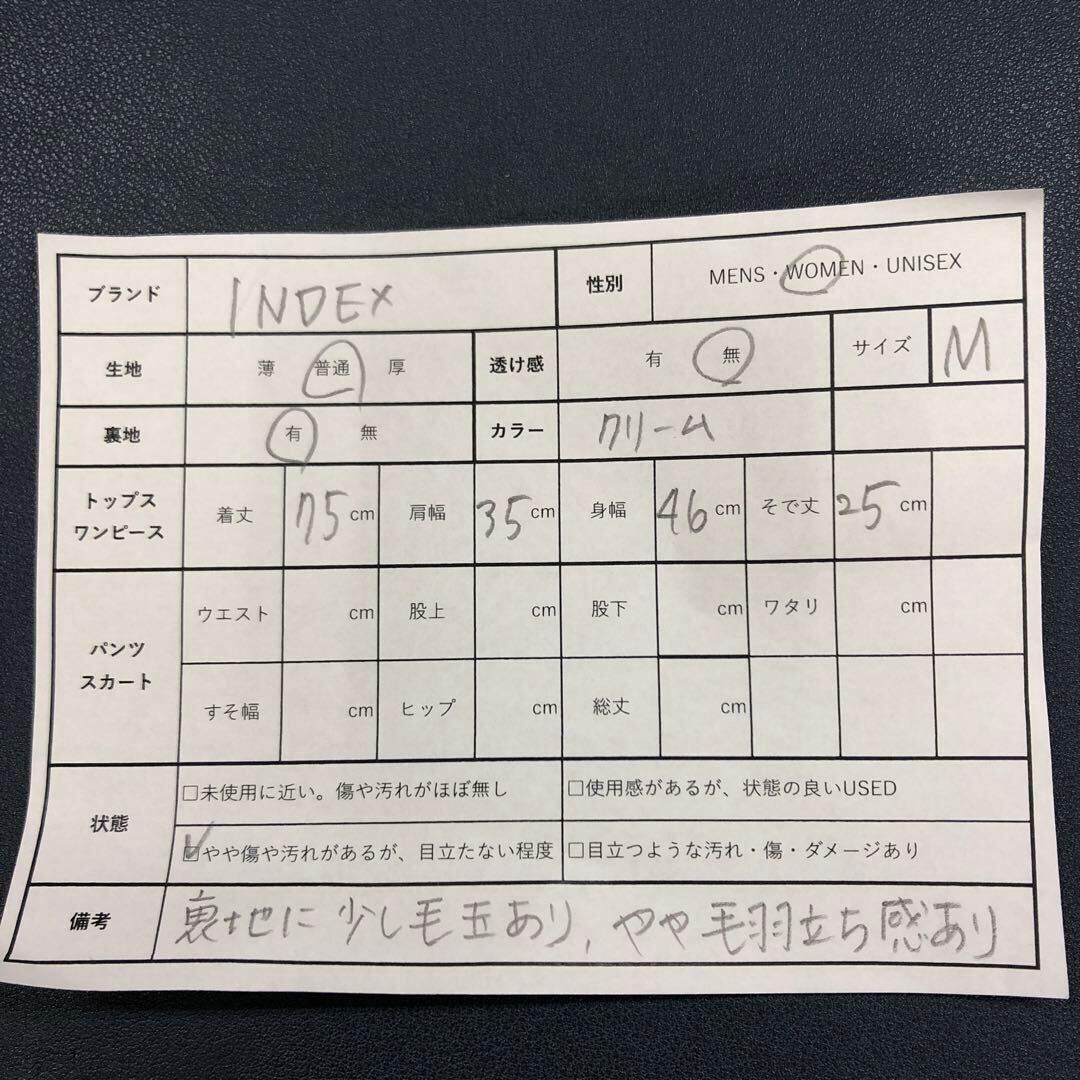 ブランド INDEX 性別 MENS・WOMEN・UNISEX
生地 薄 普通 厚 透け感 有 無 サイズ M
裏地 有 無 カラー クリーム
トップス ワンピース 着丈 75cm 肩幅 35cm 身幅 46cm そで丈 25cm
パンツ スカート ウエスト cm 股上 cm 股下 cm ワタリ cm
すそ幅 cm ヒップ cm 総丈 cm
状態 □未使用に近い。傷や汚れがほぼ無し □使用感があるが、状態の良いUSED
☑やや傷や汚れがあるが、目立たない程度 □目立つような汚れ・傷・ダメージあり
備考 裏地に少し毛玉あり、やや毛羽立ち感あり